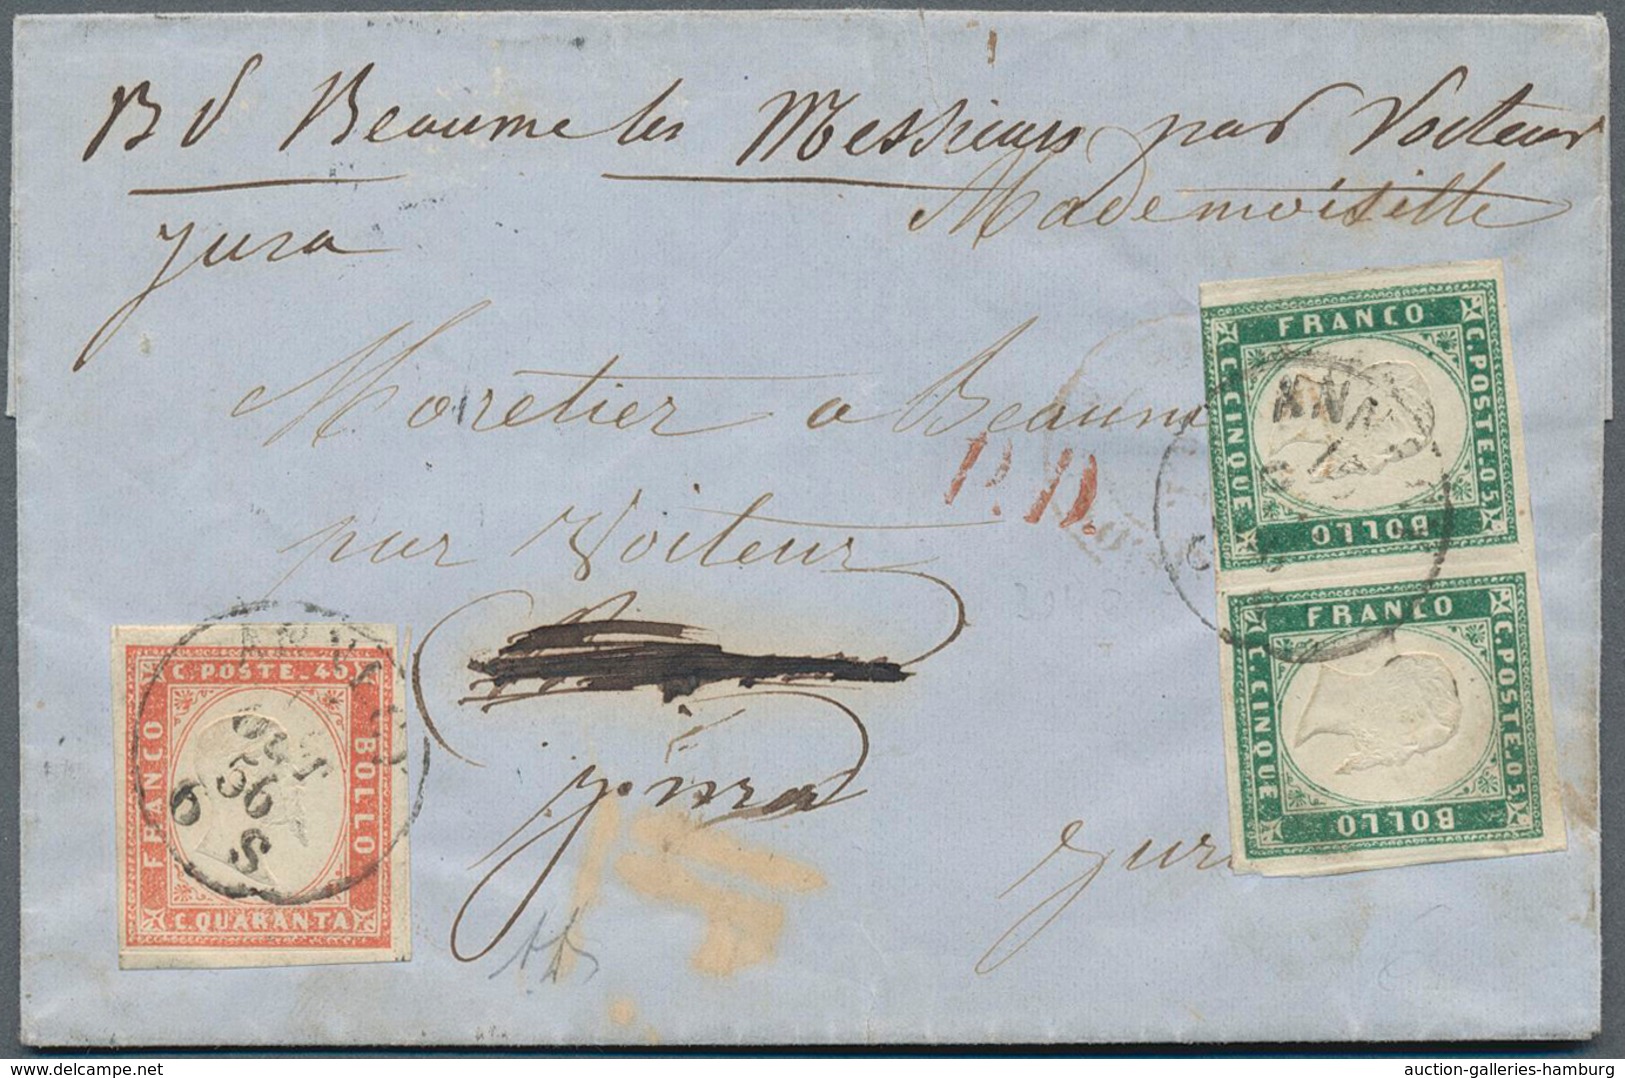 B d Beaume les Messieurs par Voiteur
Jura
Mademoiselle
Moretier a Beaume
par Voiteur
Jura
P.D.
FRANCO
C. POSTE. 05
BOLLO
C. CINQUE
ANN
FRANCO
C. POSTE. 05
BOLLO
C. CINQUE
C. POSTE. 40
FRANCO
BOLLO
C. QUARANTA
56
9 S
auction-galleries-hamburg